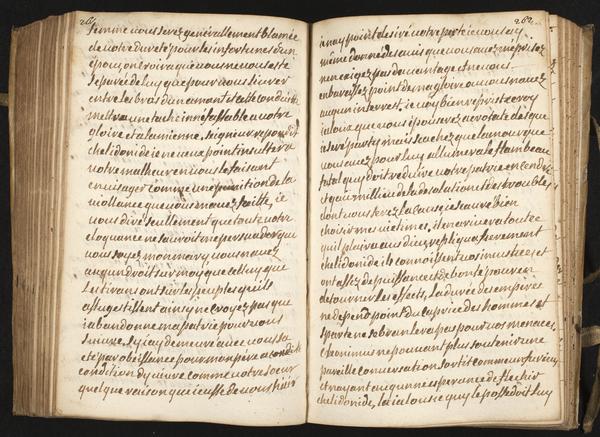 261
femme vous serez generallement blamée
de votre dureté pour les infortunes d'un
epoux, on croira que vous ne vous este
separée de luy que pour vous livrer
entre les bras d'un amant et cette conduitte
mettra une tache ineffassable a votre
gloire et a la mienne, seigneur repondit
chelidonide je ne veux point insulter a
votre malheur en vous le faisant
envisager comme une punition de la
viollance que vous m'avez faitte, je
vous dire seullement que toute votre
eloquance ne sauroit me persuader que
vous soyez mon mary vous n'avez
aucun droit sur moy que celuy que
les tirans ont sur les peuples qu'ils
assugetissent ainsy ne croyez pas que
j'abandonne ma patrie pour vous
suivre, sy j'ay demeuré avec vous sa
eté par obeissance pour mon pere a condit
condition d'y vivre comme votre soeur
quelque raison que j'eusse de vous hair
262
je n'ay point desiré votre perte je vous ay
même donné des avis que vous avez méprisez
n'en exigez pas davantage et ne vous
embarassez point de ma gloire ou vous n'avez
aucun interrest, je voy bien reprist
jaloux que vous epouserez acrotate des que
je seré party mais sachez que l'amour que
vous avez pour luy allumera le flambeau
fatal qui doit reduire votre patrie en cendre
et qu'au millieu de la desolation et des troubles
dont vous serez la cause je sauré bien
choisir mes victimes, il en arrivera tout ce
qu'il plaira aux dieux repliqua fierement
chelidonide ils connoissent vos injustices et
ont assez de puissance et de bonté pour en
detourner les effects, la durée des empires
ne depend point du caprice des hommes et
sparte ne s'ebranlera pas pour vos menaces,
Cleonimus ne pouvant plus soutenir une
pareille conversation sortit comme un furieux
et n'ayant aucune esperance de flechir
chelidonide, la jalousie qui le possedoit luy